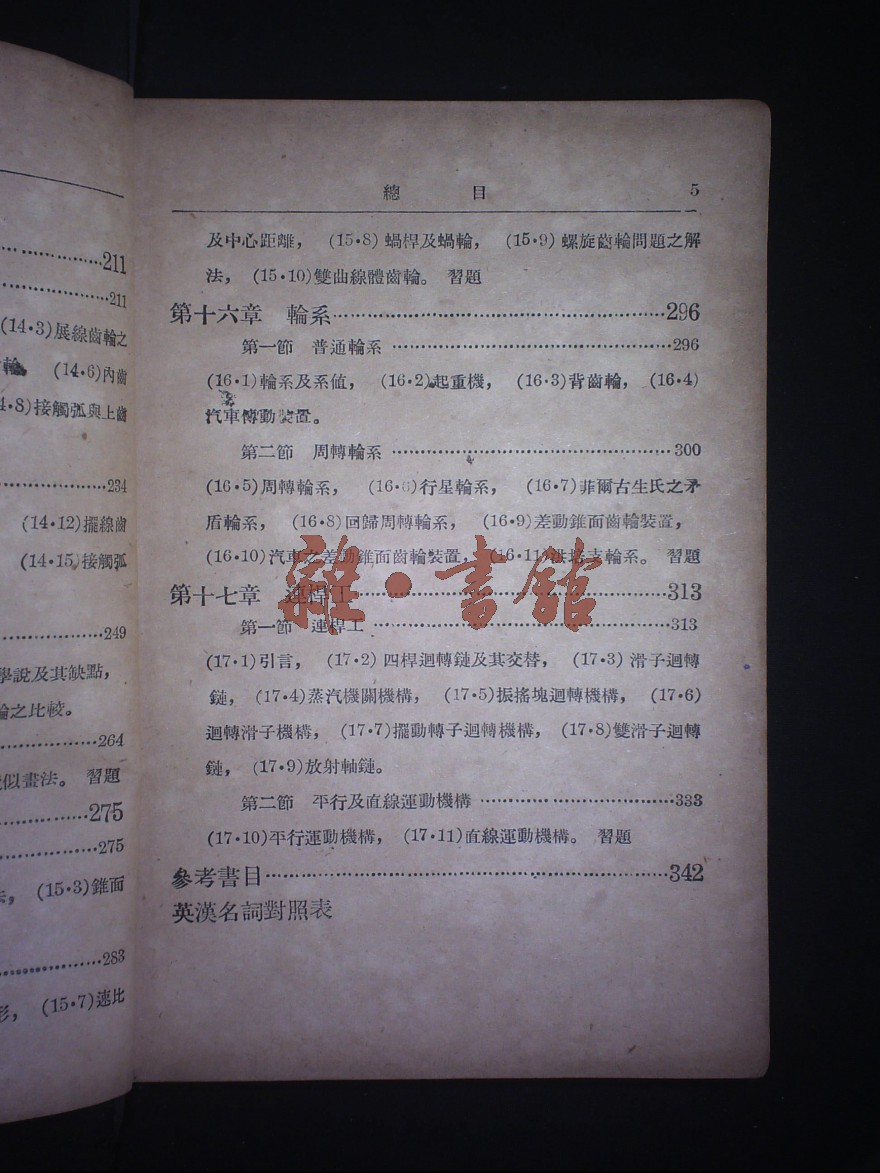 211
211
(14·3)展線齒輪之
輪, (14·6)內齒
4·8)接觸弧與上齒
234
(14·12)擺線齒
(14·15)接觸弧
249
學說及其缺點,
輪之比較。
264
似畫法。 習題
275
275
(15·3)錐面
283
形, (15·7)速比
總 目 5
及中心距離, (15·8)蝸桿及蝸輪, (15·9)螺旋齒輪問題之解
法, (15·10)雙曲線體齒輪。 習題
第十六章 輪系……296
第一節 普通輪系……296
(16·1)輪系及系値, (16·2)起重機, (16·3)背齒輪, (16·4)
汽車傳動裝置。
第二節 周轉輪系……300
(16·5)周轉輪系, (16·6)行星輪系, (16·7)菲爾古生氏之矛
盾輪系, (16·8)回歸周轉輪系, (16·9)差動錐面齒輪裝置,
(16·10)汽車之差動錐面齒輪裝置, (16·11)輪系。 習題
雜·書舘
第十七章 連桿工……313
第一節 連桿工……313
(17·1)引言, (17·2)四桿迴轉鏈及其交替, (17·3)滑子迴轉
鏈, (17·4)蒸汽機關機構, (17·5)振搖塊迴轉機構, (17·6)
迴轉滑子機構, (17·7)擺動轉子迴轉機構, (17·8)雙滑子迴轉
鏈, (17·9)放射軸鏈。
第二節 平行及直線運動機構……333
(17·10)平行運動機構, (17·11)直線運動機構。 習題
參考書目……342
英漢名詞對照表